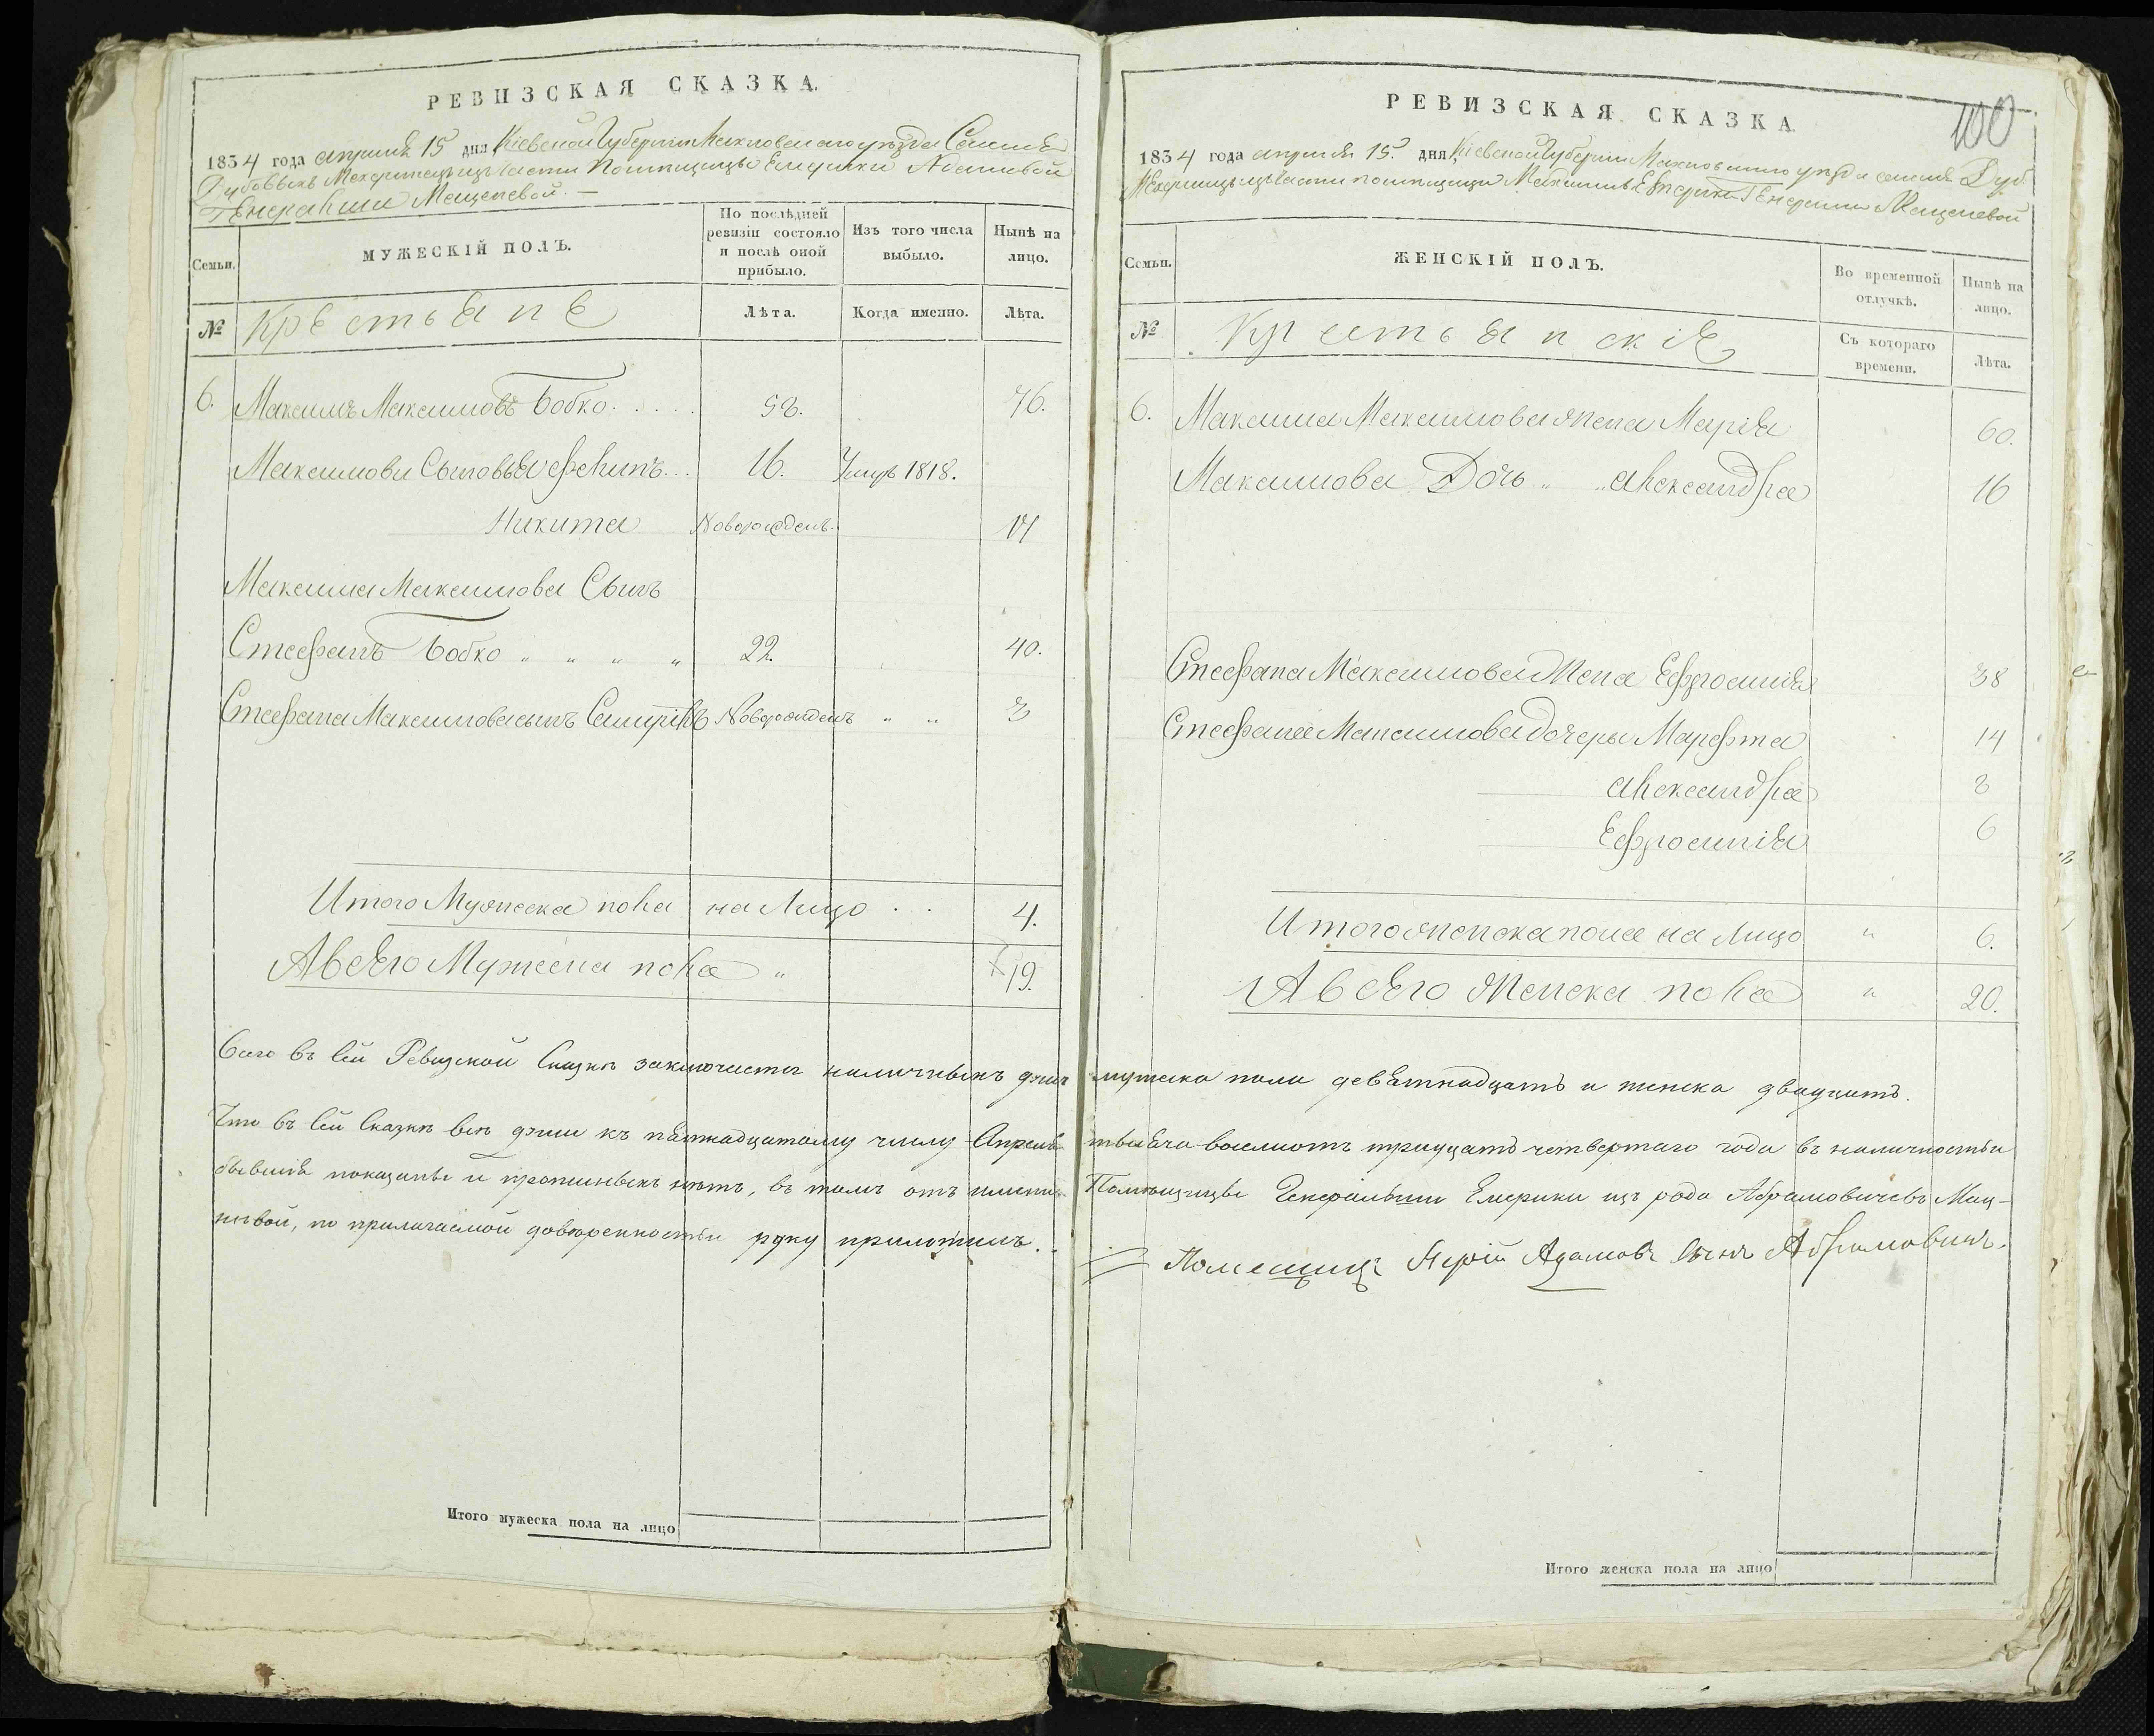 РЕВИЗСКАЯ СКАЗКА.
1834 года апреля 15 дня Кіевской Губерніи Махновскаго уѣзда Селенія
Дубовыхъ Махаринецъ изъ части Помѣщицы Емерики Адамовой
Генеральши
Семьи.
МУЖЕСКІЙ ПОЛЪ.
По послѣдней ревизіи состояло и послѣ оной прибыло.
Изъ того числа выбыло.
Нынѣ на лицо.
№
Крестьяне
Лѣта.
Когда именно.
Лѣта.
6. Максимъ Максимовъ Бобко 58. 76.
Максимова Сыновья 16. Умре 1818.
Никита Новорожденъ 17
Максима Максимова Сынъ
Стефанъ Бобко " " " " 22. 40.
Стефана Максимова сынъ Новорожденъ " " 3
Итого Мужеска пола на Лицо 4.
А всего Мужеска пола " 19.
Всего въ сей Ревизской Сказкѣ заключается наличныхъ душъ
Что въ сей Сказкѣ всѣ души къ пятнадцатому числу Апреля
бывшія показаны и прописныхъ нѣтъ, въ томъ отъ имени
по прилагаемой довѣренности руку приложилъ.
Итого мужеска пола на лицо
РЕВИЗСКАЯ СКАЗКА
100
1834 года апреля 15. дня Кіевской Губерніи Махновского уѣзда селенія Дуб.
Махаринецъ изъ части помѣщицы Генеральши
Семьи.
ЖЕНСКІЙ ПОЛЪ.
Во временной отлучкѣ.
Нынѣ на лицо.
№
Крестьянскія
Съ котораго времени.
Лѣта.
6. Максима Максимова жена Марія 60.
Максимова Дочь " " Александра 16
Стефана Максимова Жена Ефросинія 38
Стефана Максимова дочеры Марфта 14
Александра 8
Ефросинія 6
Итого женска пола на Лицо " 6.
А всего Женска пола " 20.
мужеска пола девятнадцать и женска двадцать.
тысяча восемьсотъ тридцать четвертаго года въ наличности
Помѣщицы Генеральши Емерики изъ рода Абрамовичевъ Мац-
Помещикъ Адамовъ сынъ Абрамовичъ.
Итого женска пола на лицо